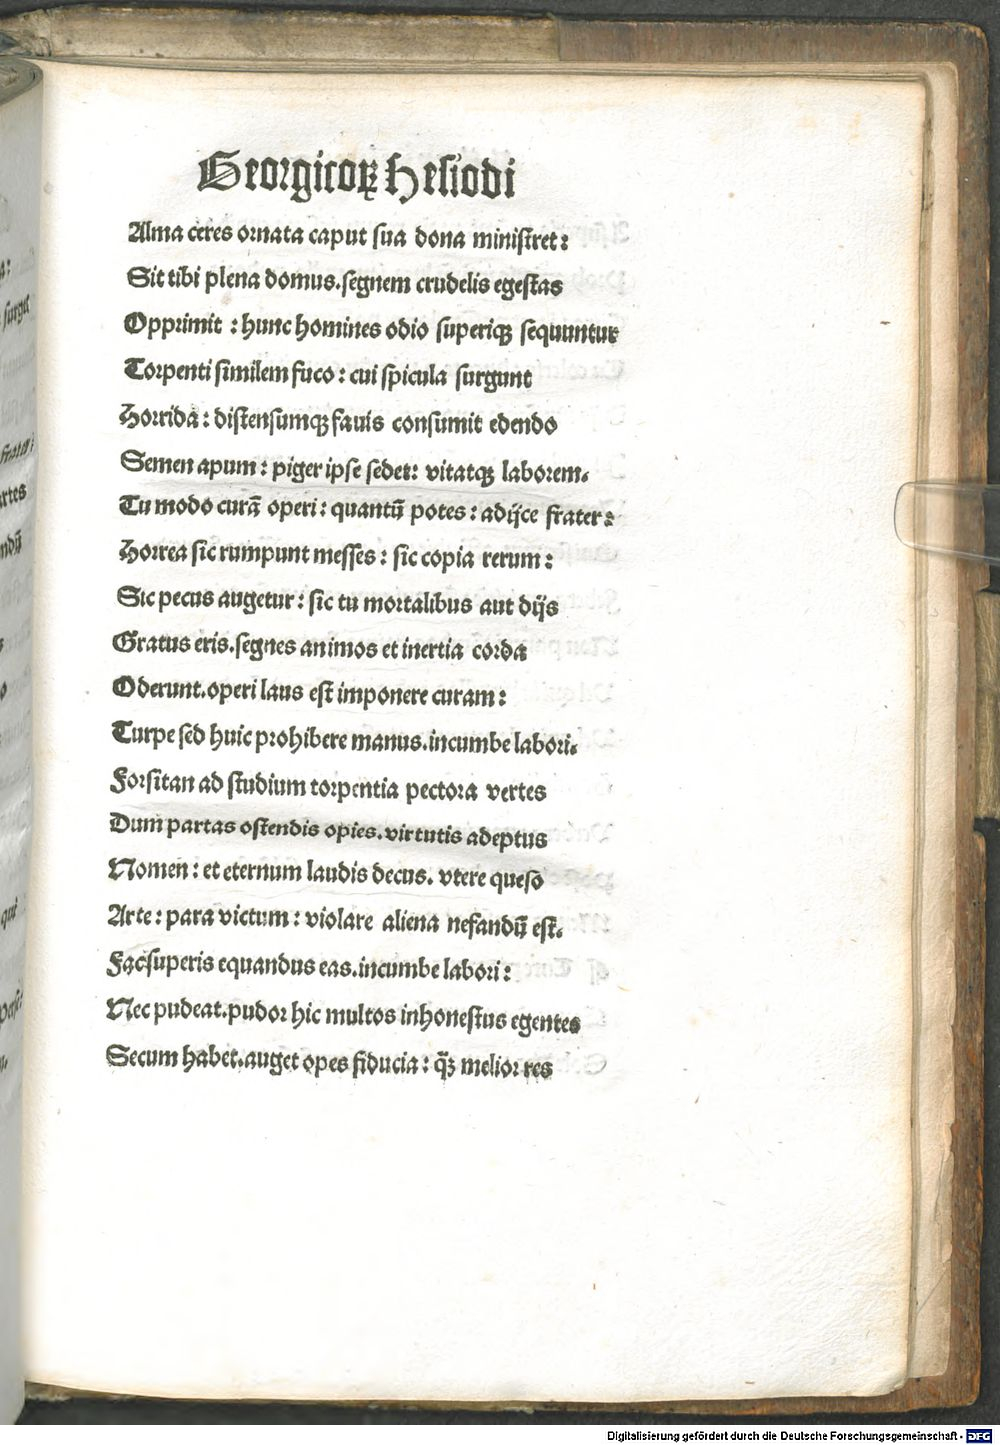 Georgicoꝝ Hesiodi
Alma ceres ornata caput sua dona ministret:
Sit tibi plena domus.segnem crudelis egestas
Opprimit : hunc homines odio superiqꝫ sequuntur
Torpenti similem fuco : cui spicula surgunt
Horrida : distensumqꝫ fauis consumit edendo
Semen apum : piger ipse sedet: vitatqꝫ laborem.
Tu modo curā operi : quantū potes : adijce frater:
Horrea sic rumpunt messes : sic copia rerum :
Sic pecus augetur : sic tu mortalibus aut dijs
Gratus eris.segnes animos et inertia corda
Oderunt.operi laus est imponere curam :
Turpe sed huic prohibere manus.incumbe labori.
Forsitan ad studium torpentia pectora vertes
Dum partas ostendis opies.virtutis adeptus
Nomen : et eternum laudis decus. vtere queso
Arte : para victum : violare aliena nefandū est.
Fac superis equandus eas.incumbe labori :
Nec pudeat.pudor hic multos inhonestus egentes
Secum habet.auget opes fiducia : q̄ꝫ melior res
Digitalisierung gefördert durch die Deutsche Forschungsgemeinschaft - DFG